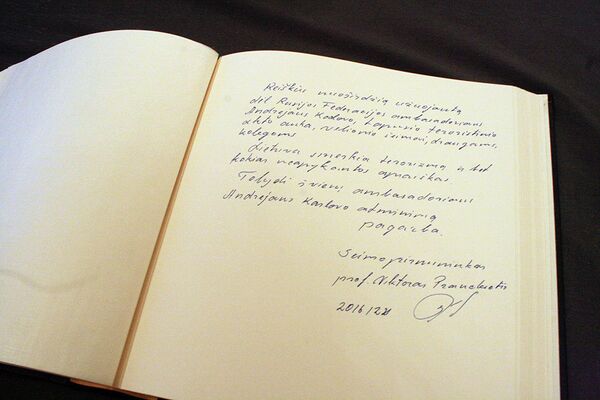 Reiškiu nuoširdžią užuojautą
dėl Rusijos Federacijos ambasadoriaus
Andrejaus Karlovo, tapusio teroristinio
akto auka, velionio šeimai, draugams,
kolegoms.
Lietuva smerkia terorizmą ir bet
kokias neapykantos apraiškas.
Tebūna šviesų ambasadoriaus
Andrejaus Karlovo atminimą
pagarba.
Seimo pirmininkas
prof. Viktoras Pranckietis
2016 12 21